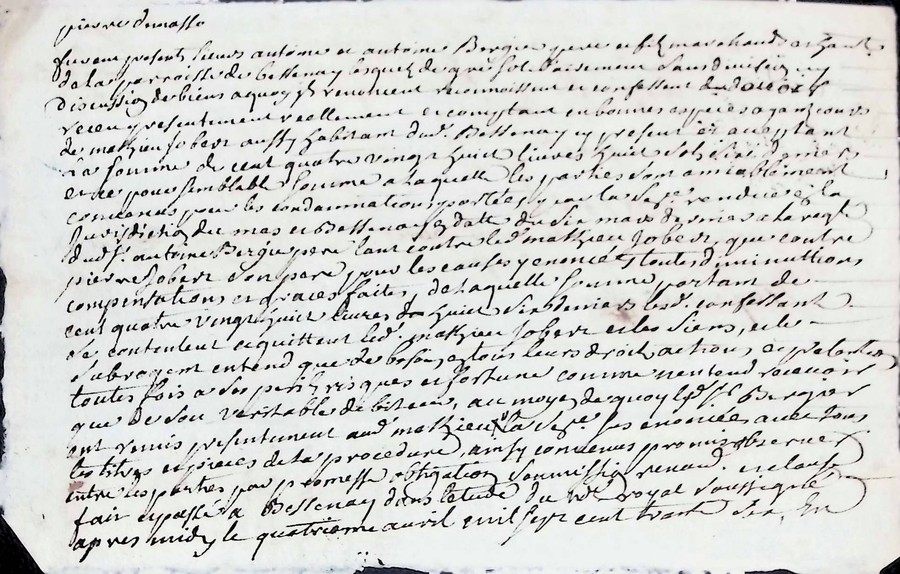 pierre
furent presents sieurs antoine et antoine Bergier pere et fils marchands
de la parroisse de Bessenay lesquels de gré sol. sans division ny
discussion de biens a quoy ils renoncent reconnoissent et confessent avoir
receu presentement reellement et comptant en bonnes especes ayant cours
de mathieu Jobert aussy habitant dud. Bessenay cy present et acceptant
La somme de cent quatre vingt huit livres huit sols six deniers
et ce pour semblable somme a laquelle les parties sont amiablement
convenus pour les condamnations portées par la rendue a la
Jurisdiction du mas et Bessenay datte du six mars dernier a la req.te
dud. s.r antoine Bergier pere tant contre led. mathieu Jobert, que contre
pierre Jobert son pere pour les causes y enoncé toutes diminutions
compensations et graces faites, de laquelle somme portant de
cent quatre vingt huit livres huit s. six deniers les d. confessant
se contentent et quittent led. mathieu Jobert et les siens,
Subrogent entend que de besoin a tous leurs droits actions,
toutes fois a ses perils risques et fortune comme
que de son veritable debiteur, au moyen de quoy les d. s.rs Bergier
ont remis presentement aud. mathieu la enoncée avec tous
les titres et pieces de la procedure, ainsy convenus promis observer
entre les parties par promesse obligation soumission renon. et clause
fait et passé a Bessenay dans l'etude du no.re royal soussigné
apres midy le quatrieme avril mil sept cent trente six En